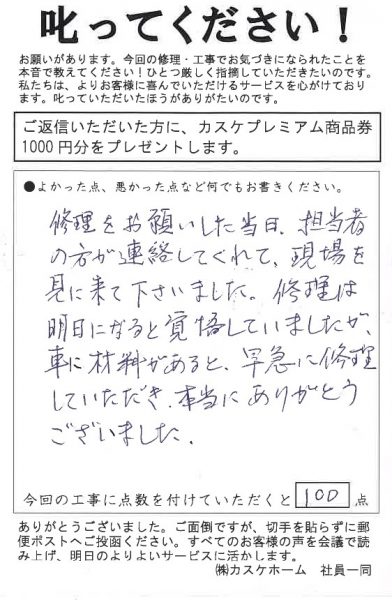 叱ってください！
お願いがあります。今回の修理・工事でお気づきになられたことを
本音で教えてください！ひとつ厳しく指摘していただきたいのです。
私たちは、よりお客様に喜んでいただけるサービスを心がけており
ます。叱っていただいたほうがありがたいのです。
ご返信いただいた方に、カスケプレミアム商品券
1000円分をプレゼントします。
●よかった点、悪かった点など何でもお書きください。
修理をお願いした当日、担当者
の方が連絡してくれて、現場を
見に来て下さいました。修理は
明日になると覚悟していましたが、
車に材料があると、早急に修理
していただき、本当にありがとう
ございました。
今回の工事に点数を付けていただくと 100 点
ありがとうございました。ご面倒ですが、切手を貼らずに郵
便ポストへご投函ください。すべてのお客様の声を会議で読
み上げ、明日のよりよいサービスに活かします。
㈱カスケホーム 社員一同